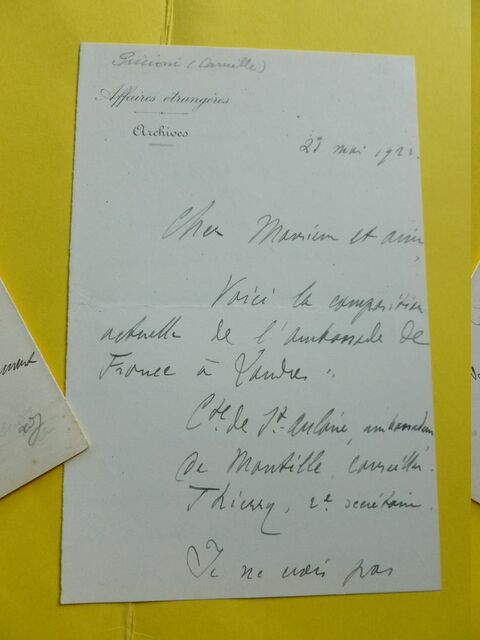 Piccioni (Camille)
Affaires étrangères
Archives
29 mai 1922.
Cher Monsieur et ami,
Voici la composition
actuelle de l'ambassade de
France à Londres :
Cte de St-Aulaire, ambassadeur
de Montille, conseiller.
Thierry, 2e secrétaire.
Je ne vois pas